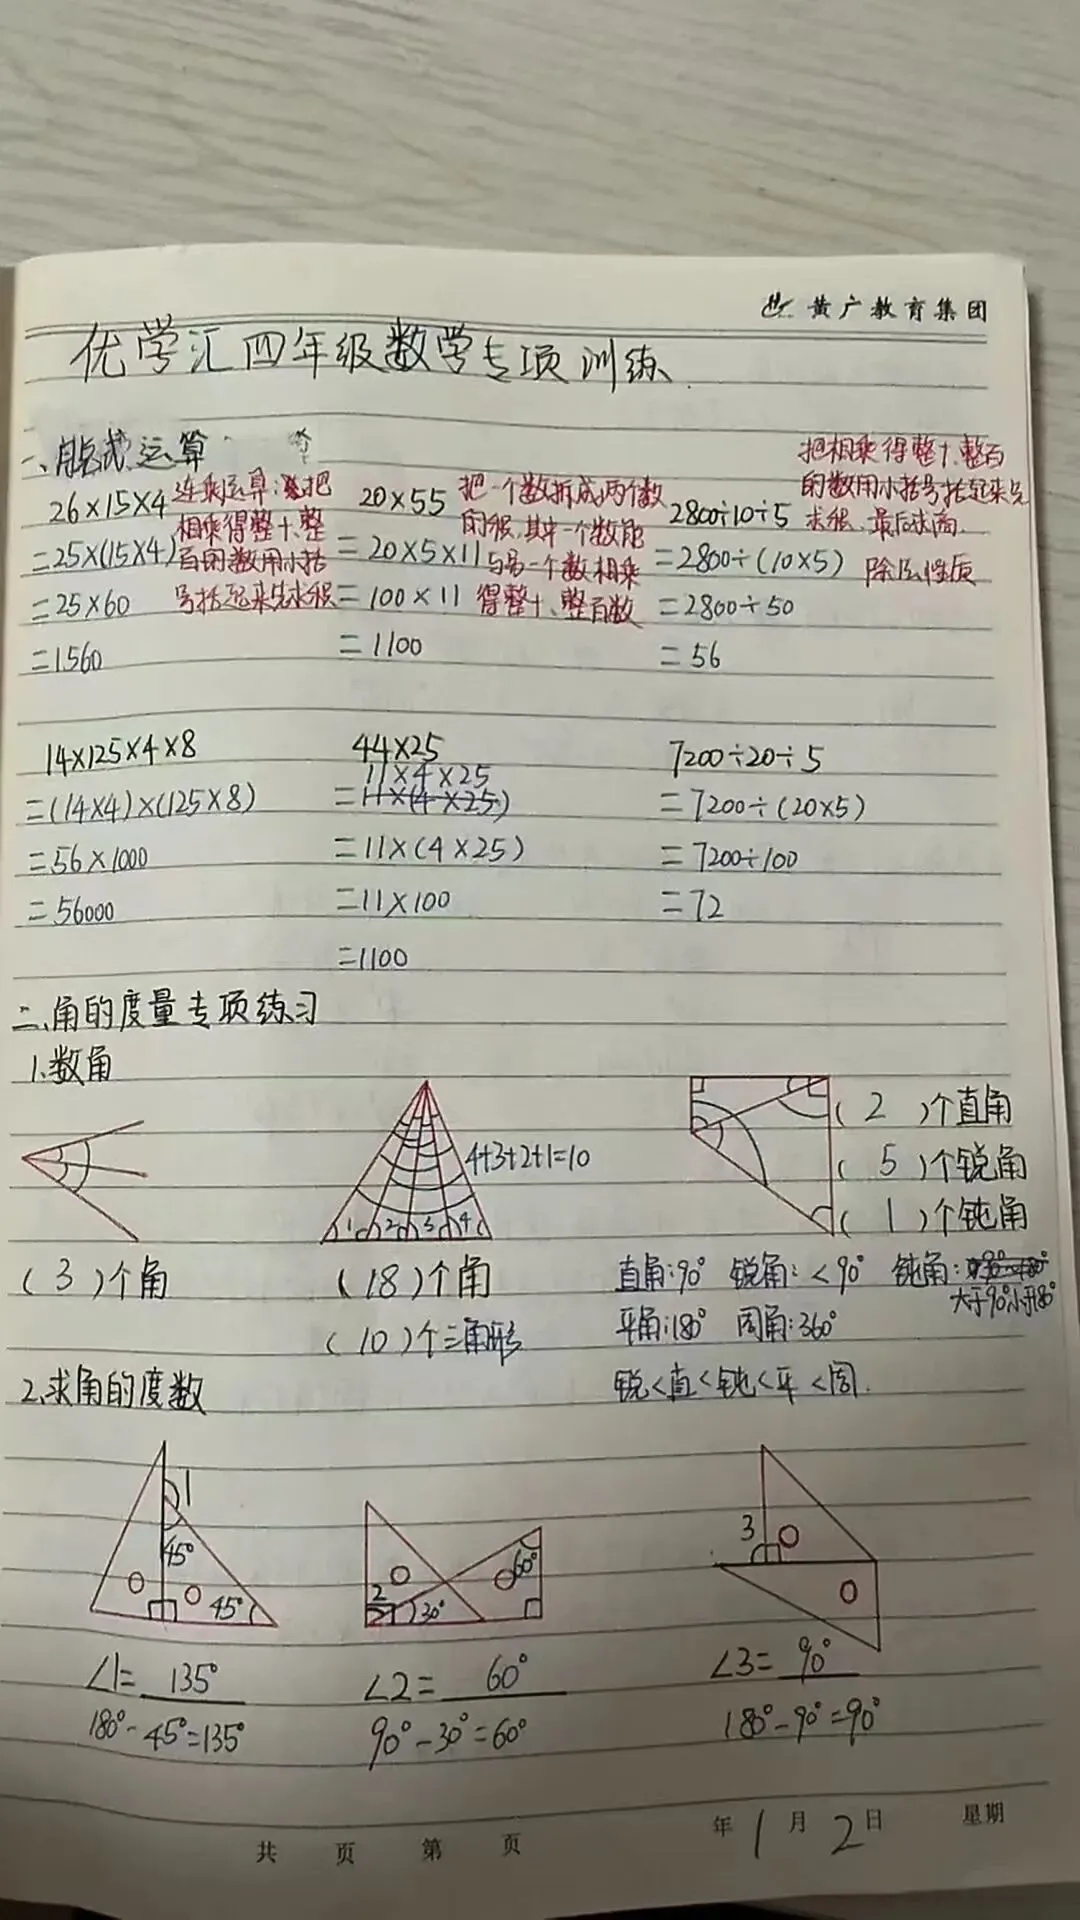 黄广教育集团
优学汇四年级数学专项训练
一、脱式运算
26×15×4
=25×(15×4)
=25×60
=1560
连乘运算:把
相乘得整十、整
百的数用小括
号括起来先求积
20×55
=20×5×11
=100×11
=1100
把一个数拆成两个数
的积,其中一个数能
与另一个数相乘
得整十、整百数
2800÷10÷5
=2800÷(10×5)
=2800÷50
=56
把相乘得整十、整百
的数用小括号括起来先
求积,最后求商.
除法性质
14×125×4×8
=(14×4)×(125×8)
=56×1000
=56000
44×25
11×4×25
=11×(4×25)
=11×(4×25)
=11×100
=1100
7200÷20÷5
=7200÷(20×5)
=7200÷100
=72
二、角的度量专项练习
1.数角
(3)个角
1 2 3 4
4+3+2+1=10
(18)个角
(10)个三角形
(2)个直角
(5)个锐角
(1)个钝角
直角:90° 锐角:<90° 钝角:
大于90°小于180°
平角:180° 周角:360°
锐<直<钝<平<周.
2.求角的度数
1
45°
45°
∠1=135°
180°-45°=135°
2
60°
30°
∠2=60°
90°-30°=60°
3
∠3=90°
180°-90°=90°
共 页 第 页
年1月2日 星期